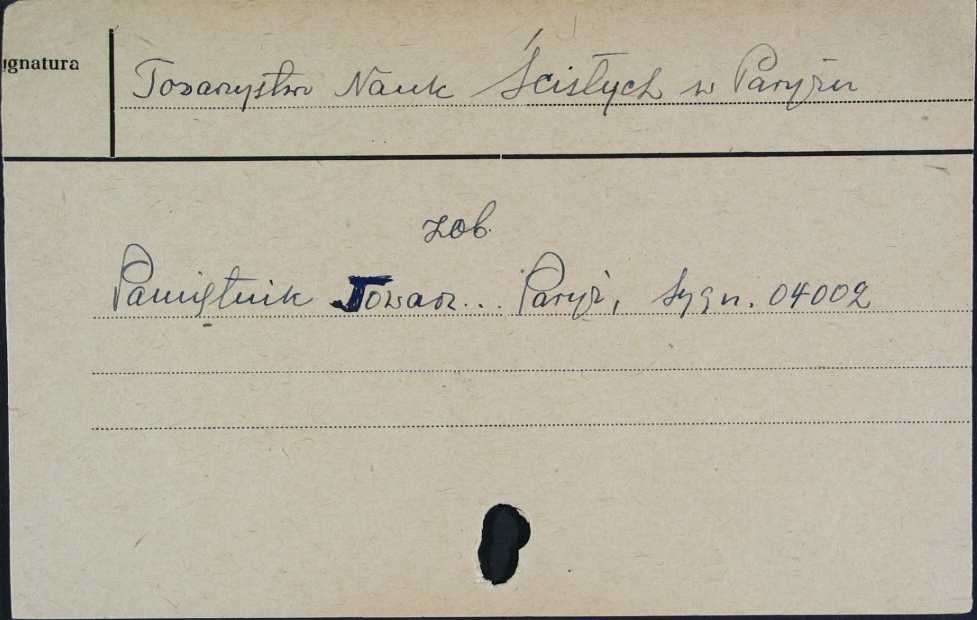 ignatura
Towarzystwo Nauk Ścisłych w Paryżu
zob.
Pamiętnik Towarz... Paryż, sygn. 04002